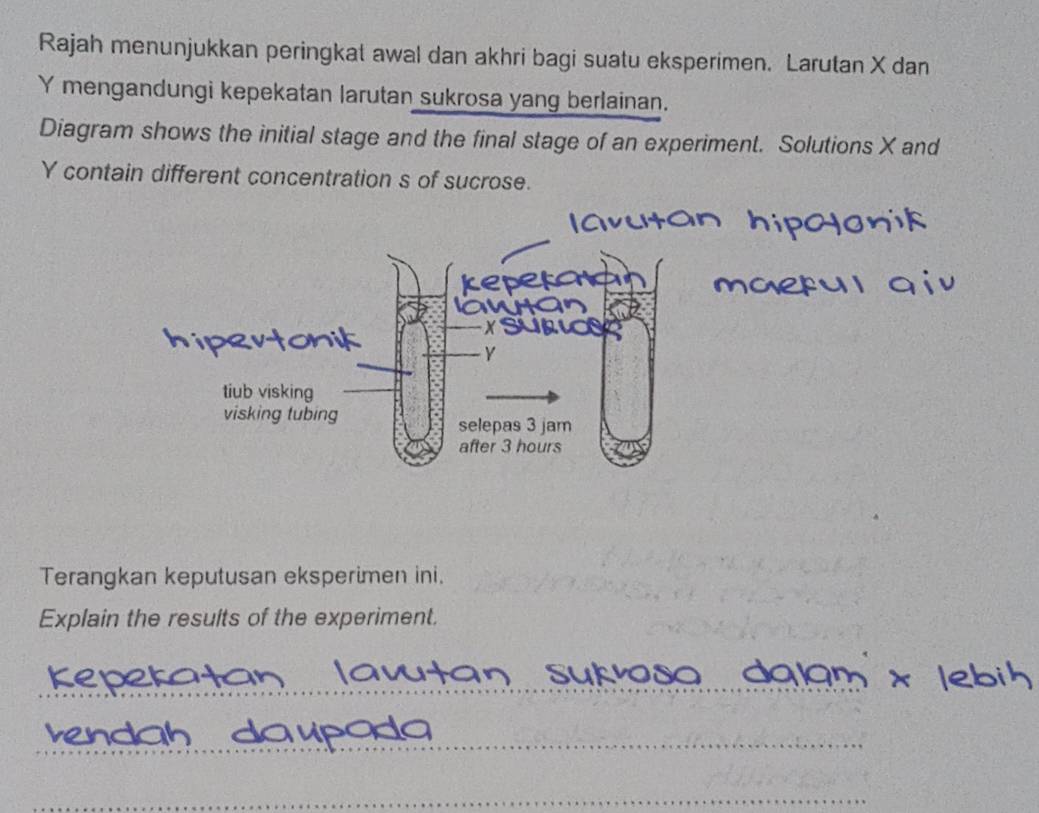 Rajah menunjukkan peringkat awal dan akhri bagi suatu eksperimen. Larutan X dan
Y mengandungi kepekatan larutan sukrosa yang berlainan.
Diagram shows the initial stage and the final stage of an experiment. Solutions X and
Y contain different concentration s of sucrose.
larutan hipotonik
kepekatan
larutan
sukrosa
X
molekul air
hipertonik
Y
tiub visking
visking tubing
selepas 3 jam
after 3 hours
Terangkan keputusan eksperimen ini.
Explain the results of the experiment.
kepekatan larutan sukrosa dalam x lebih
rendah daripada